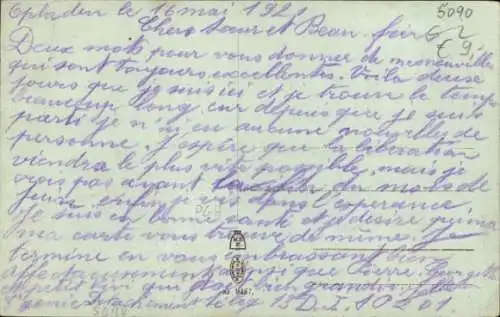 Opladen le 16 mai 1921
5090
Chers Sœur et Beau-frère
€ 9
Deux mots pour vous donner de mes nouvelles
qui sont toujours excellentes. Voila deux
jours que je suis ici et je trouve le temps
beaucoup long car depuis que je suis
parti je n'ai eu aucune nouvelles de
personne. J'espère que la libération
viendra le plus vite possible, mais je
crois pas avant la fin du mois de
juin enfin je vis dans l'esperance
Je suis en bonne santé et je désire qu'ina
ma carte vous trouve de même. Je
termine en vous embrassant bien
affectueusement ainsi que Pierre, Georgette
et petit qui doit bien grandir
L'ami Détachement 13 D.I. 102 01.